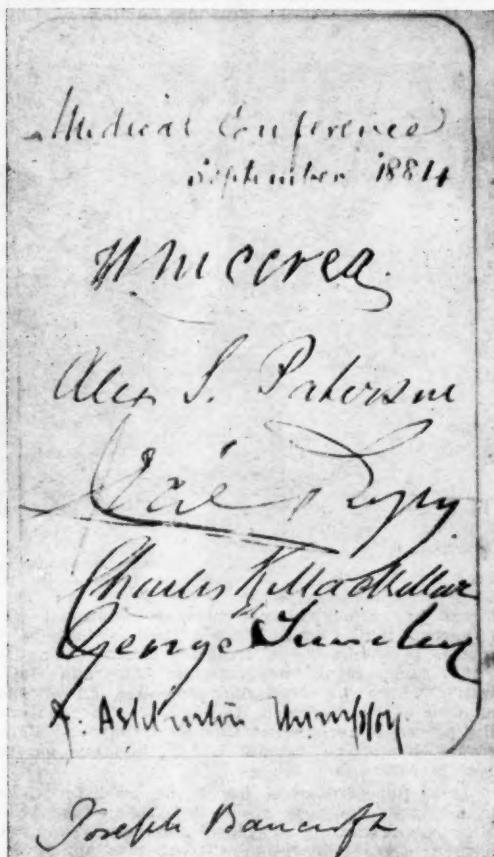 Medical Conference
September 1884
Alex S. Paterson
Charles K Mackellar
George Turnley
J. Ashburton Thompson
Joseph Bancroft